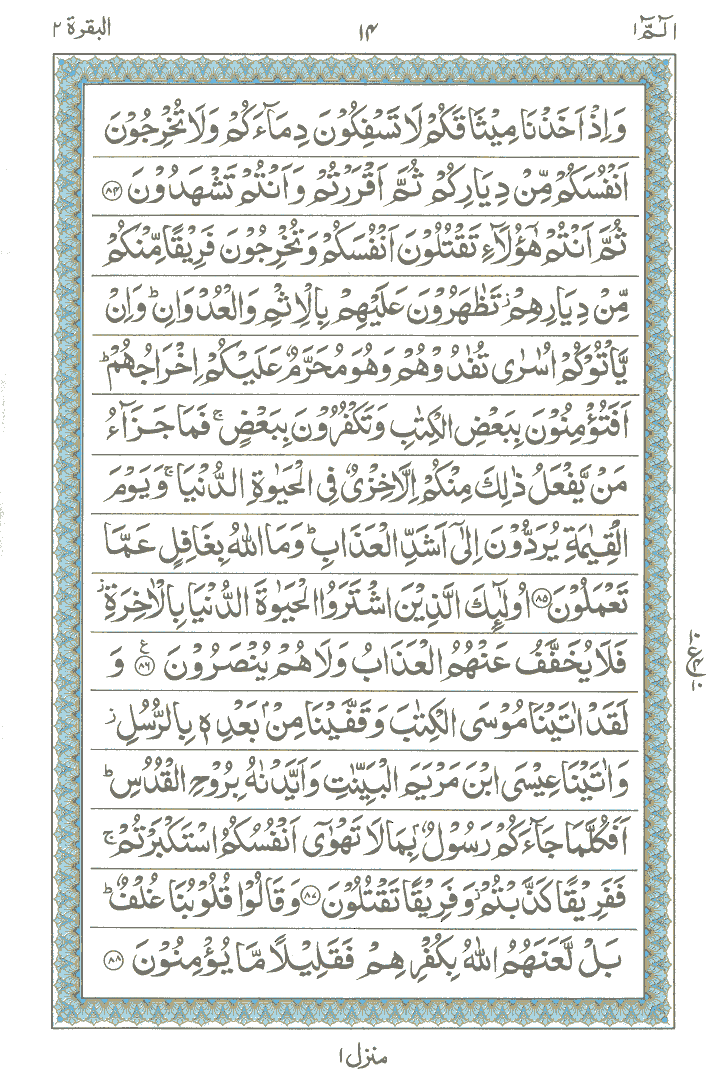 الٓمّٓ ١ ١٤ البقرة ٢
وَاِذْ اَخَذْنَا مِيْثَاقَكُمْ لَا تَسْفِكُوْنَ دِمَآءَكُمْ وَلَا تُخْرِجُوْنَ
اَنْفُسَكُمْ مِّنْ دِيَارِكُمْ ثُمَّ اَقْرَرْتُمْ وَاَنْتُمْ تَشْهَدُوْنَ ﴿٨٤﴾
ثُمَّ اَنْتُمْ هٰٓؤُلَآءِ تَقْتُلُوْنَ اَنْفُسَكُمْ وَتُخْرِجُوْنَ فَرِيْقًا مِّنْكُمْ
مِّنْ دِيَارِهِمْ ز تَظٰهَرُوْنَ عَلَيْهِمْ بِالْاِثْمِ وَالْعُدْوَانِ ؕ وَاِنْ
يَّاْتُوْكُمْ اُسٰرٰى تُفٰدُوْهُمْ وَهُوَ مُحَرَّمٌ عَلَيْكُمْ اِخْرَاجُهُمْ ؕ
اَفَتُؤْمِنُوْنَ بِبَعْضِ الْكِتٰبِ وَتَكْفُرُوْنَ بِبَعْضٍ ۚ فَمَا جَزَآءُ
مَنْ يَّفْعَلُ ذٰلِكَ مِنْكُمْ اِلَّا خِزْىٌ فِى الْحَيٰوةِ الدُّنْيَا ۚ وَيَوْمَ
الْقِيٰمَةِ يُرَدُّوْنَ اِلٰٓى اَشَدِّ الْعَذَابِ ؕ وَمَا اللّٰهُ بِغَافِلٍ عَمَّا
تَعْمَلُوْنَ ﴿٨٥﴾ اُولٰٓئِكَ الَّذِيْنَ اشْتَرَوُا الْحَيٰوةَ الدُّنْيَا بِالْاٰخِرَةِ ز
فَلَا يُخَفَّفُ عَنْهُمُ الْعَذَابُ وَلَا هُمْ يُنْصَرُوْنَ ﴿٨٦﴾ ع وَ
لَقَدْ اٰتَيْنَا مُوْسَى الْكِتٰبَ وَقَفَّيْنَا مِنْۢ بَعْدِهٖ بِالرُّسُلِ ز
وَاٰتَيْنَا عِيْسَى ابْنَ مَرْيَمَ الْبَيِّنٰتِ وَاَيَّدْنٰهُ بِرُوْحِ الْقُدُسِ ؕ
اَفَكُلَّمَا جَآءَكُمْ رَسُوْلٌۢ بِمَا لَا تَهْوٰٓى اَنْفُسُكُمُ اسْتَكْبَرْتُمْ ۚ
فَفَرِيْقًا كَذَّبْتُمْ ز وَفَرِيْقًا تَقْتُلُوْنَ ﴿٨٧﴾ وَقَالُوْا قُلُوْبُنَا غُلْفٌ ؕ
بَلْ لَّعَنَهُمُ اللّٰهُ بِكُفْرِهِمْ فَقَلِيْلًا مَّا يُؤْمِنُوْنَ ﴿٨٨﴾
منزل ١